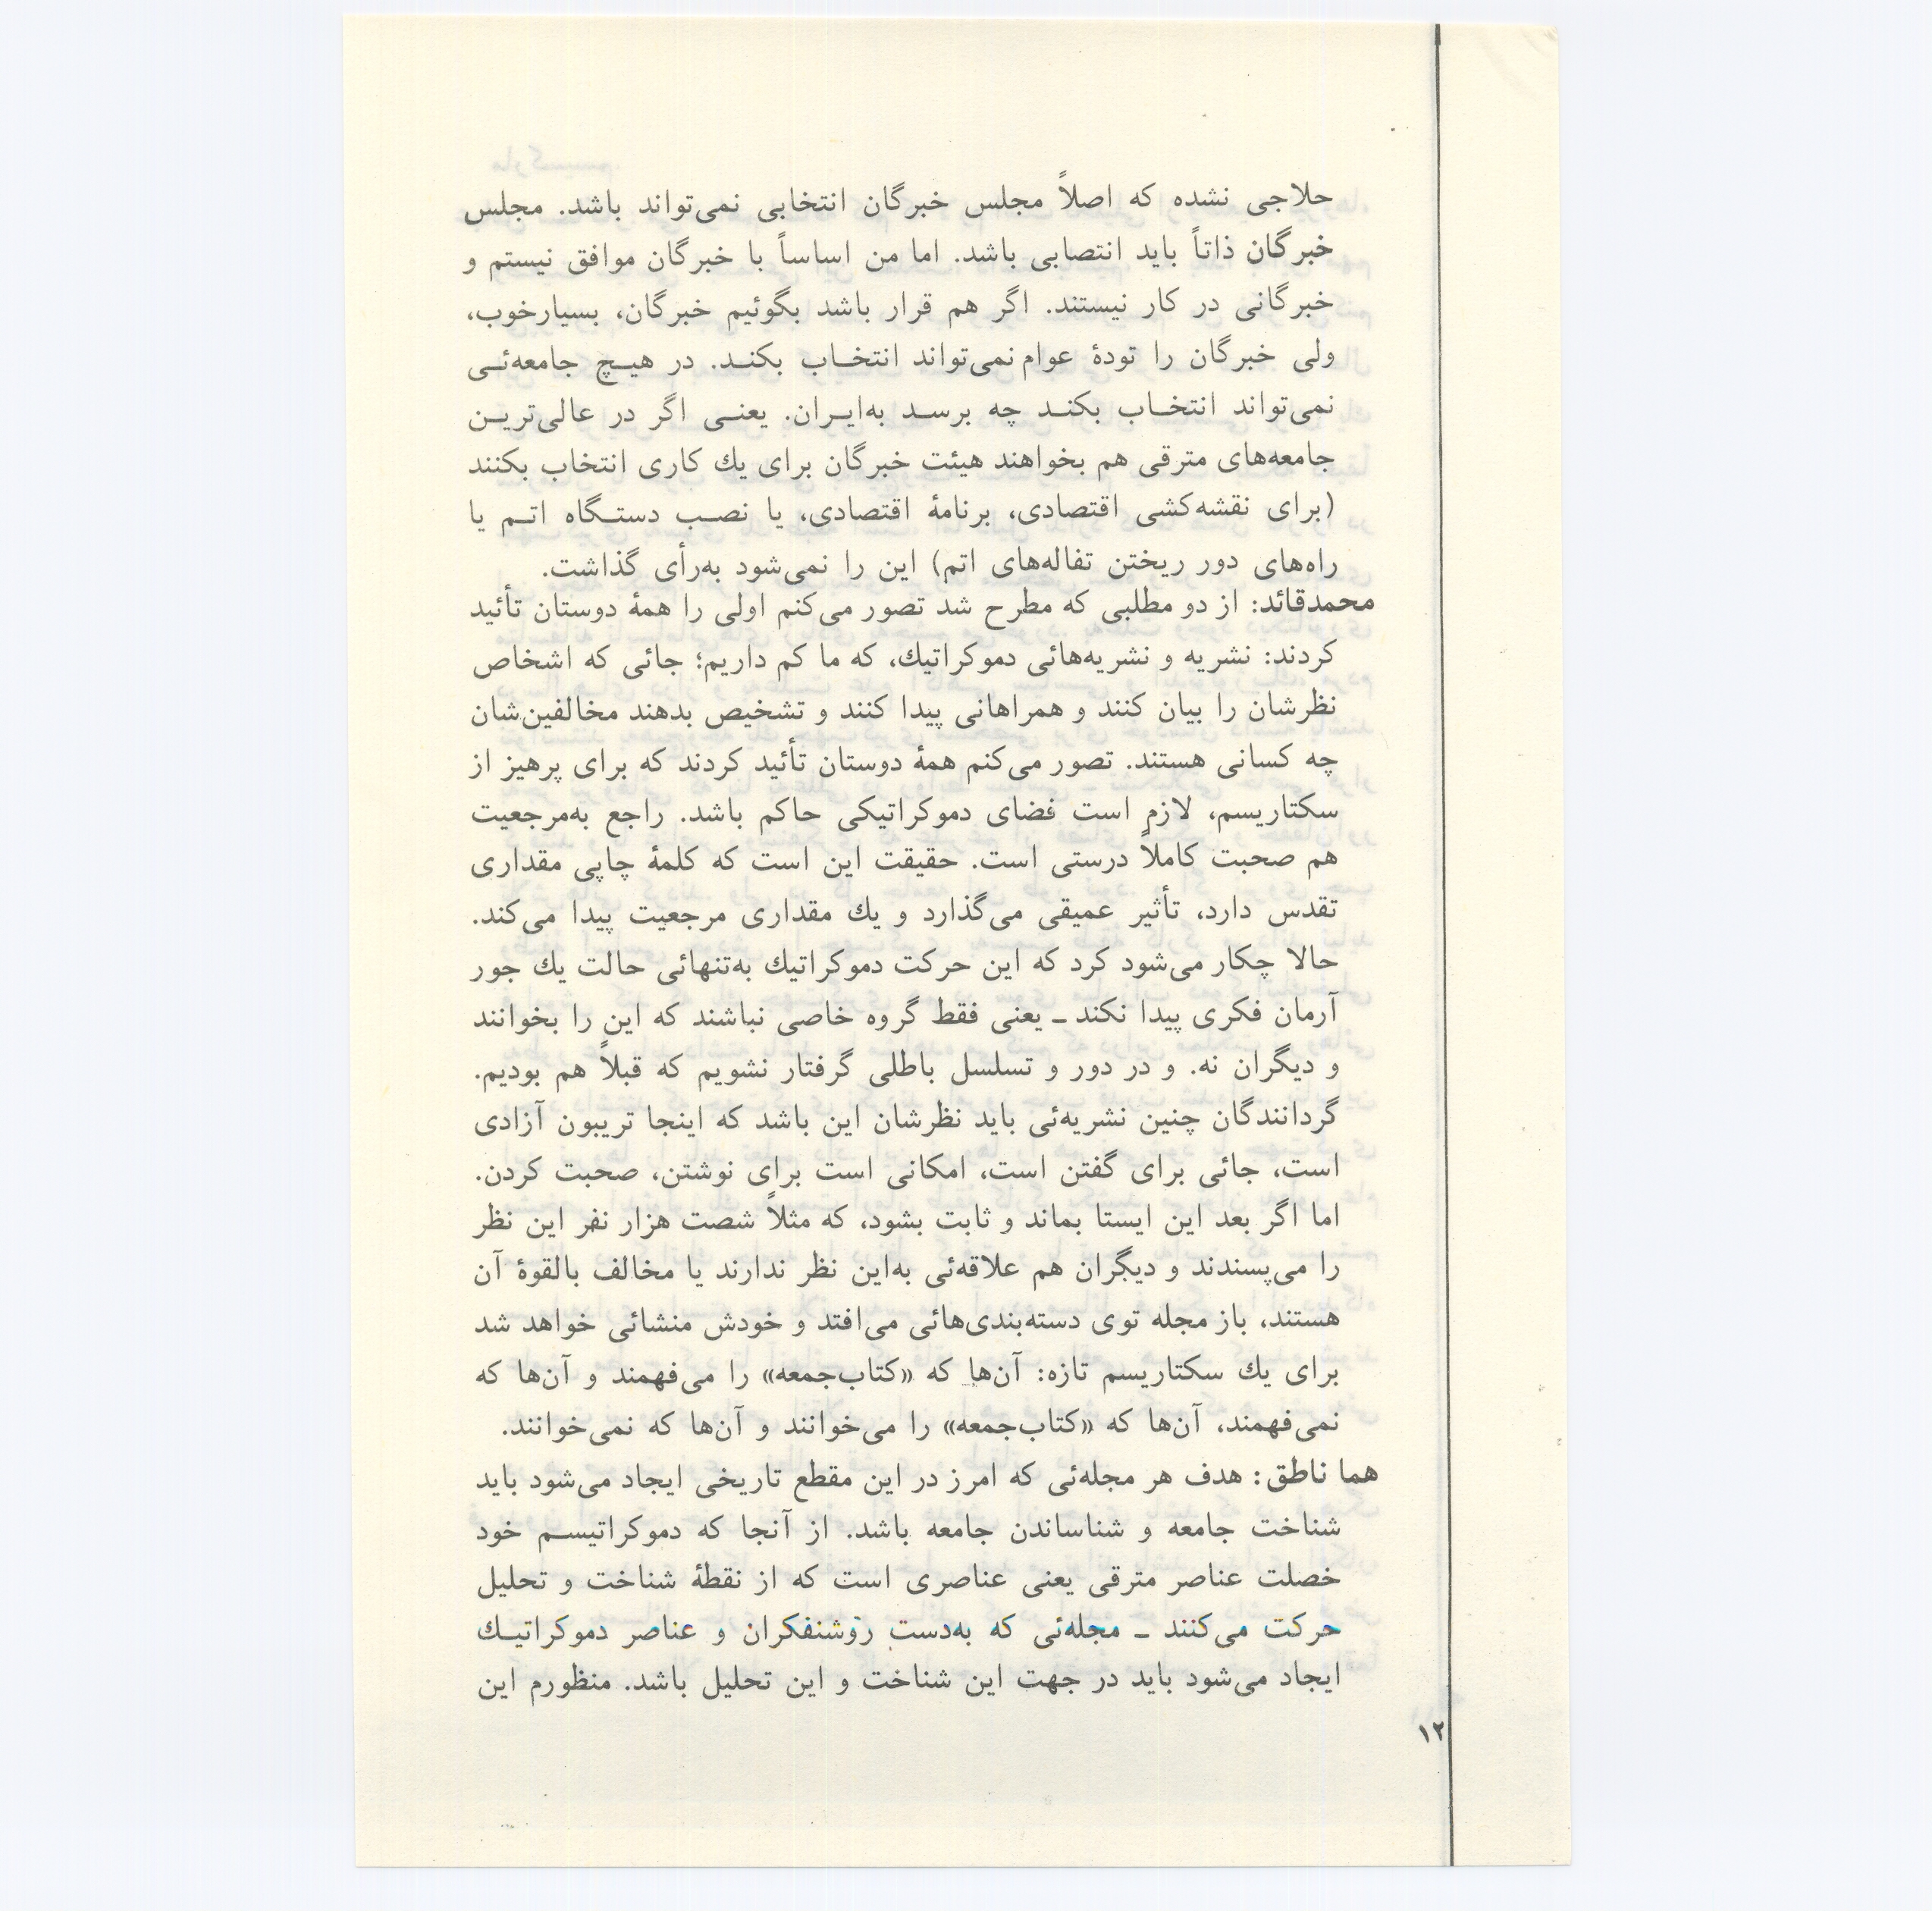 حلاجی نشده که اصلاً مجلس خبرگان انتخابی نمی‌تواند باشد. مجلس
خبرگان ذاتاً باید انتصابی باشد. اما من اساساً با خبرگان موافق نیستم و
خبرگانی در کار نیستند. اگر هم قرار باشد بگوئیم خبرگان، بسیارخوب،
ولی خبرگان را تودهٔ عوام نمی‌تواند انتخـاب بکنـد. در هیـچ جامعه‌ئـی
نمی‌تواند انتخـاب بکنـد چه برسـد به‌ایـران. یعنـی اگر در عالی‌تریـن
جامعه‌های مترقی هم بخواهند هیئت خبرگان برای یك کاری انتخاب بکنند
(برای نقشه‌کشی اقتصادی، برنامهٔ اقتصادی، یا نصـب دستـگاه اتـم یا
راه‌های دور ریختن تفاله‌های اتم) این را نمی‌شود به‌رأی گذاشت.
محمدقائد: از دو مطلبی که مطرح شد تصور می‌کنم اولی را همهٔ دوستان تأئید
کردند: نشریه و نشریه‌هائی دموکراتیك، که ما کم داریم؛ جائی که اشخاص
نظرشان را بیان کنند و همراهانی پیدا کنند و تشخیص بدهند مخالفین‌شان
چه کسانی هستند. تصور می‌کنم همهٔ دوستان تأئید کردند که برای پرهیز از
سکتاریسم، لازم است فضای دموکراتیکی حاکم باشد. راجع به‌مرجعیت
هم صحبت کاملاً درستی است. حقیقت این است که کلمهٔ چاپی مقداری
تقدس دارد، تأثیر عمیقی می‌گذارد و یك مقداری مرجعیت پیدا می‌کند.
حالا چکار می‌شود کرد که این حرکت دموکراتیك به‌تنهائی حالت یك جور
آرمان فکری پیدا نکند ـ یعنی فقط گروه خاصی نباشند که این را بخوانند
و دیگران نه. و در دور و تسلسل باطلی گرفتار نشویم که قبلاً هم بودیم.
گردانندگان چنین نشریه‌ئی باید نظرشان این باشد که اینجا تریبون آزادی
است، جائی برای گفتن است، امکانی است برای نوشتن، صحبت کردن.
اما اگر بعد این ایستا بماند و ثابت بشود، که مثلاً شصت هزار نفر این نظر
را می‌پسندند و دیگران هم علاقه‌ئی به‌این نظر ندارند یا مخالف بالقوهٔ آن
هستند، باز مجله توی دسته‌بندی‌هائی می‌افتد و خودش منشائی خواهد شد
برای یك سکتاریسم تازه: آن‌ها که «کتاب‌جمعه» را می‌فهمند و آن‌ها که
نمی‌فهمند، آن‌ها که «کتاب‌جمعه» را می‌خوانند و آن‌ها که نمی‌خوانند.
هما ناطق: هدف هر مجله‌ئی که امرز در این مقطع تاریخی ایجاد می‌شود باید
شناخت جامعه و شناساندن جامعه باشد. از آنجا که دموکراتیسـم خود
خصلت عناصر مترقی یعنی عناصری است که از نقطهٔ شناخت و تحلیل
حرکت می‌کنند ـ مجله‌ئی که به‌دست روشنفکران و عناصر دموکراتیـك
ایجاد می‌شود باید در جهت این شناخت و این تحلیل باشد. منظورم این
۱۲